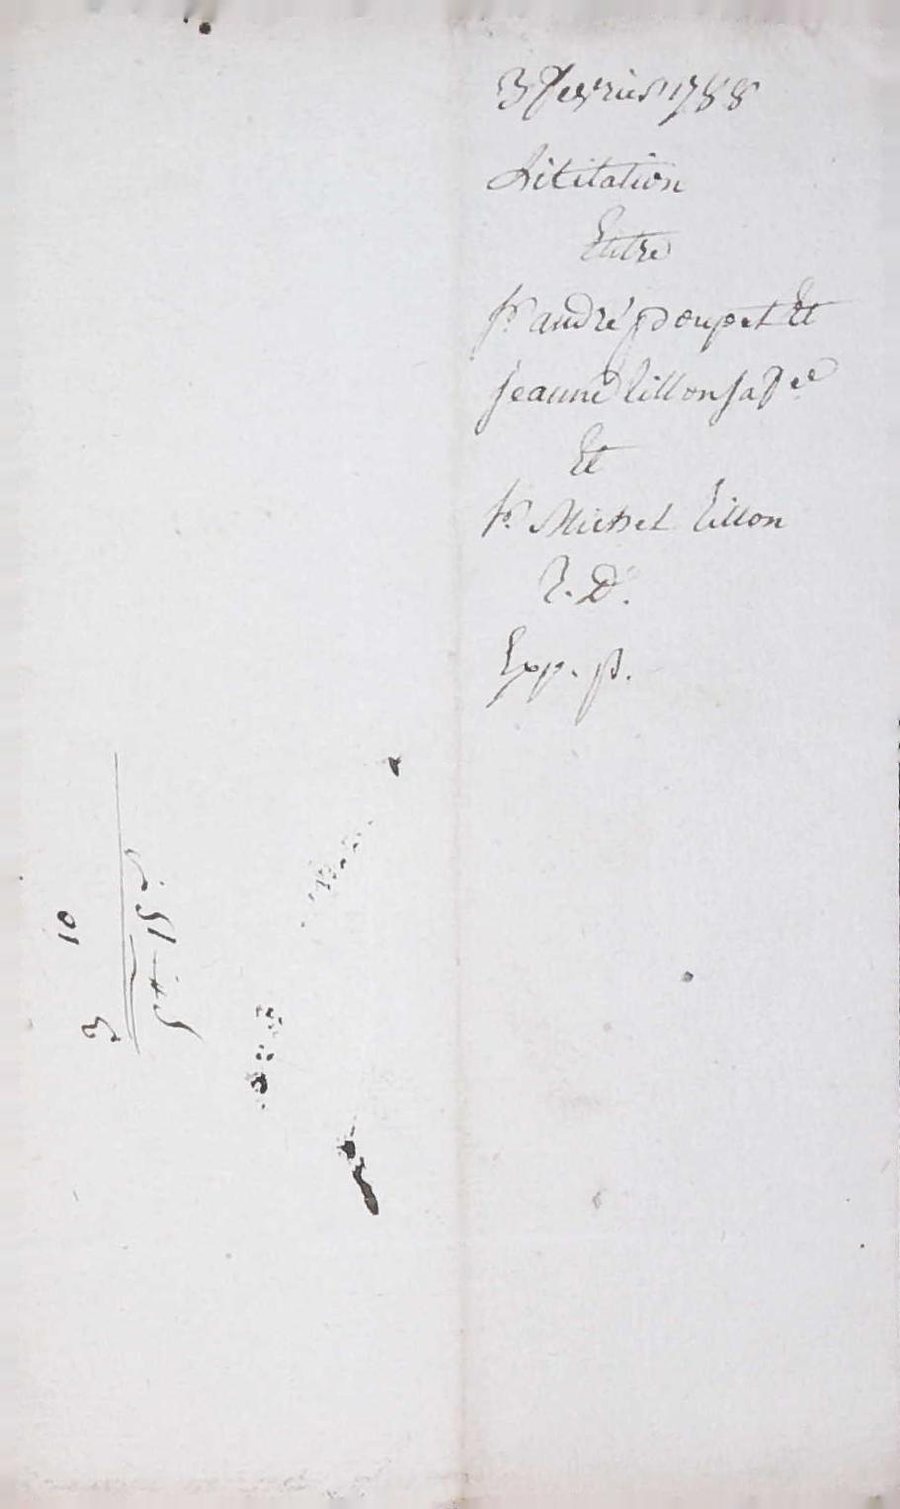 3 fevrier 1788
Licitation
Entre
Sr. andré poupet Et
Jeanne Tillon sa fee
Et
Sr. Michel Tillon
Exp. p.
10
3